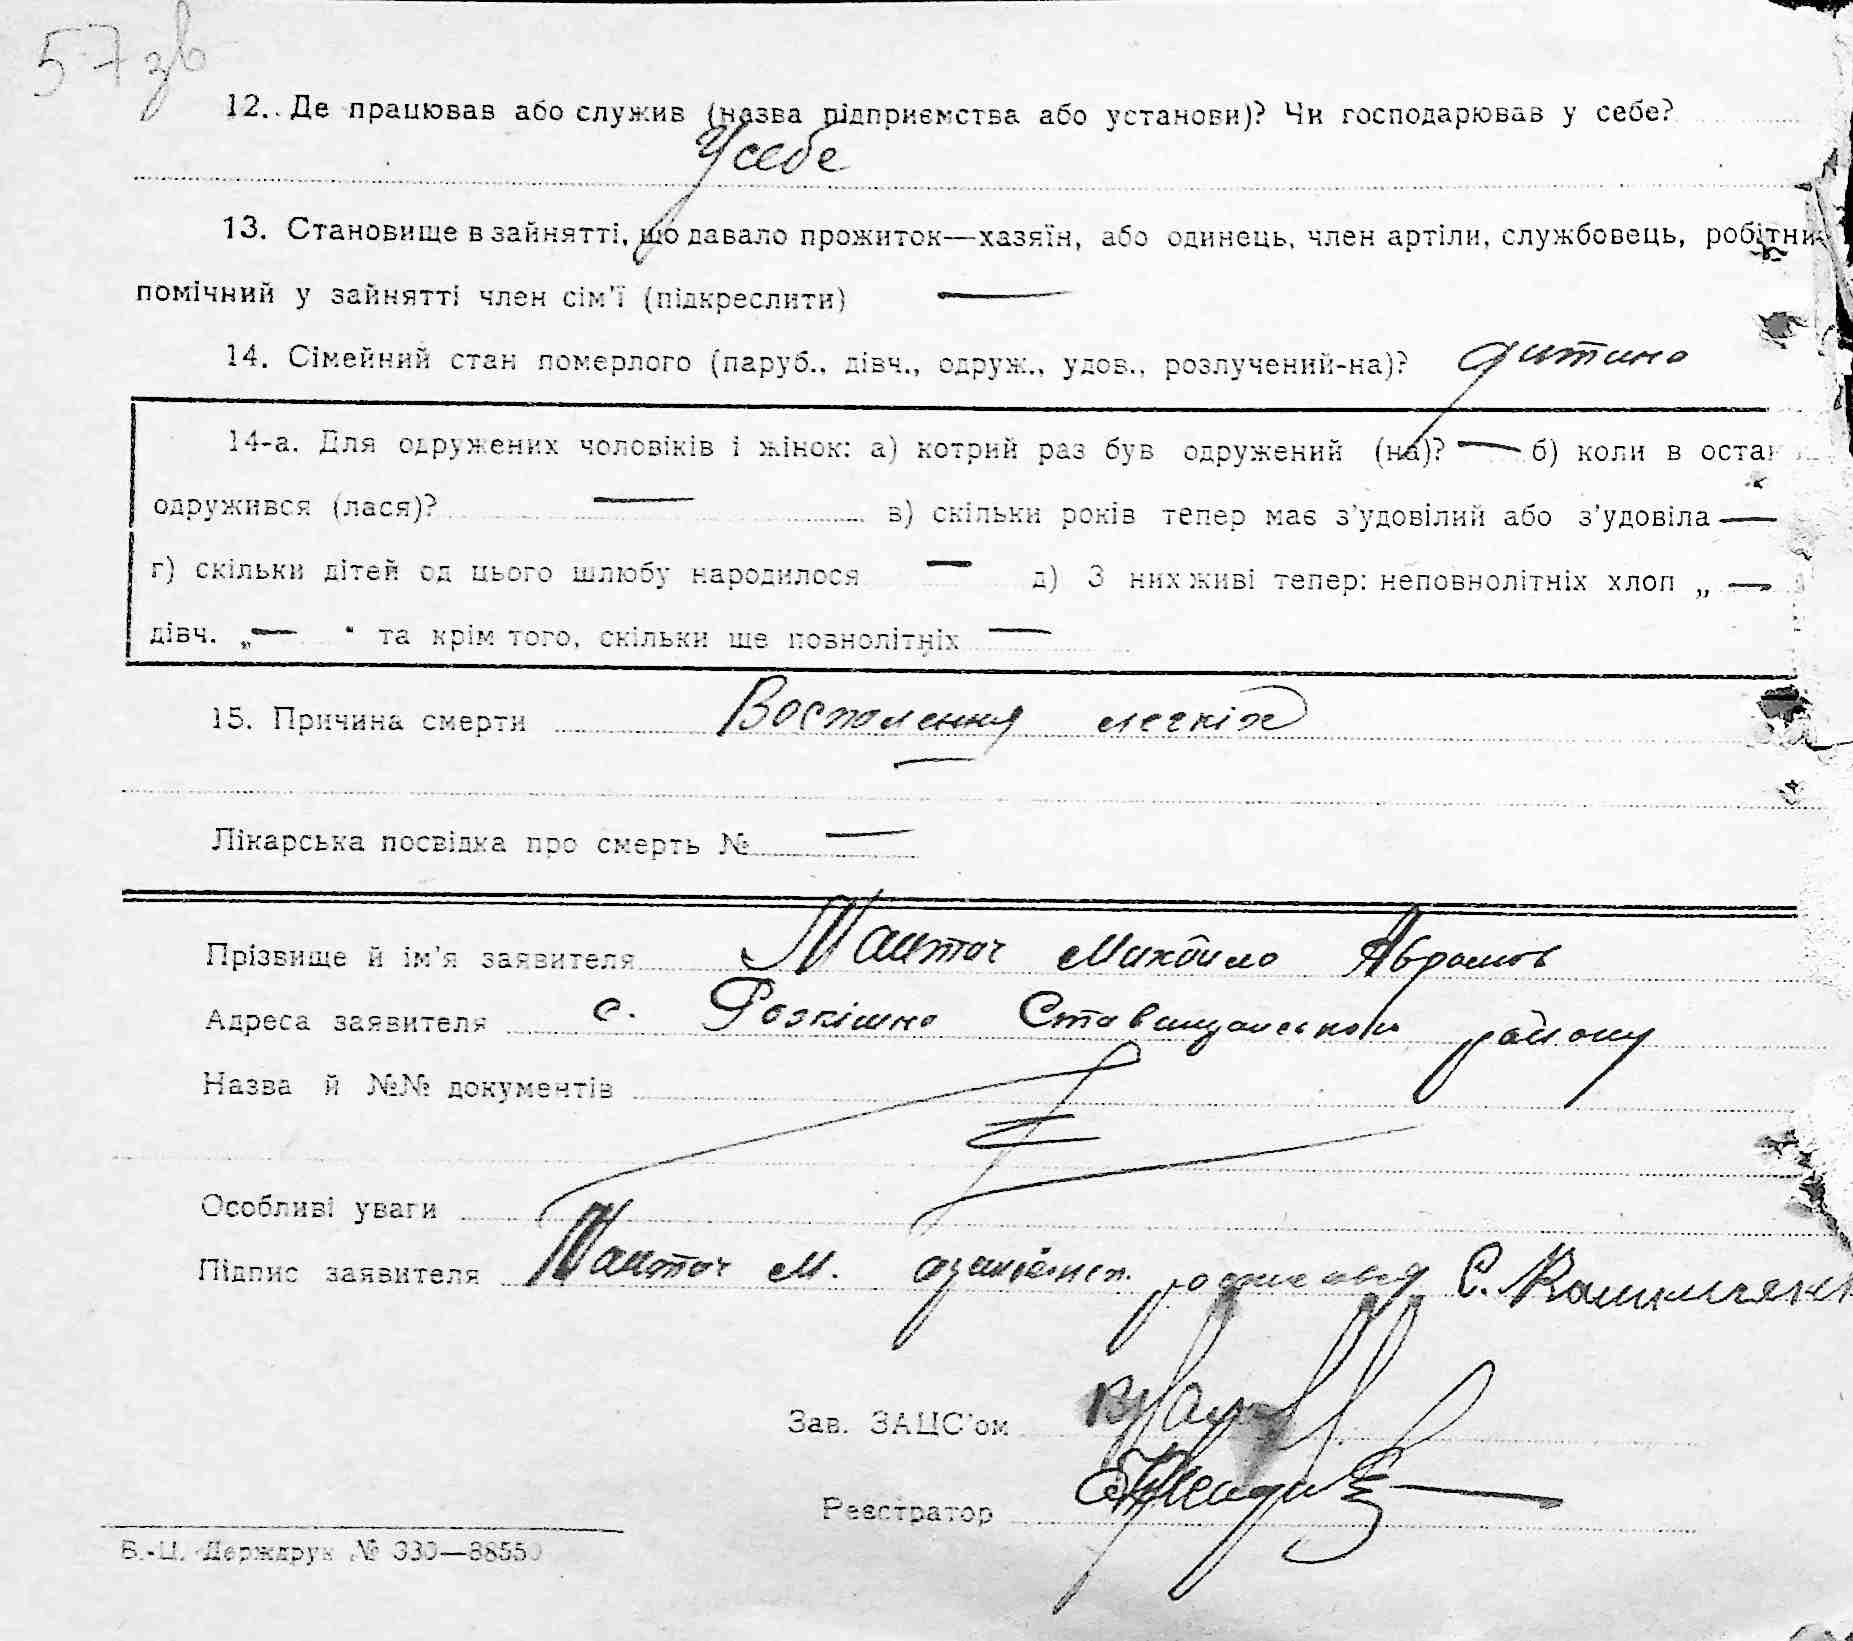 57 зв
12. Де працював або служив (назва підприємства або установи)? Чи господарював у себе?
У себе
13. Становище в зайнятті, що давало прожиток—хазяїн, або одинець, член артіли, службовець, робітни
помічний у зайнятті член сім'ї (підкреслити) —
14. Сімейний стан померлого (паруб., дівч., одруж., удов., розлучений-на)? дитина
14-а. Для одружених чоловіків і жінок: а) котрий раз був одружений (на)? — б) коли в остан
одружився (лася)? — в) скільки років тепер має з'удовілий або з'удовіла —
г) скільки дітей од цього шлюбу народилося — д) З них живі тепер: неповнолітніх хлоп „ —
дівч. „ — “ та крім того, скільки ще повнолітніх —
15. Причина смерти Восполения легкіх
Лікарська посвідка про смерть № —
Прізвище й ім'я заявителя Михайло Абрамов
Адреса заявителя с. Розкішна Ставищанського району
Назва й №№ документів
Особливі уваги
Підпис заявителя М. С.
Зав. ЗАЦС'ом
Реєстратор
В.-Ц. Держдрук № 330—88550